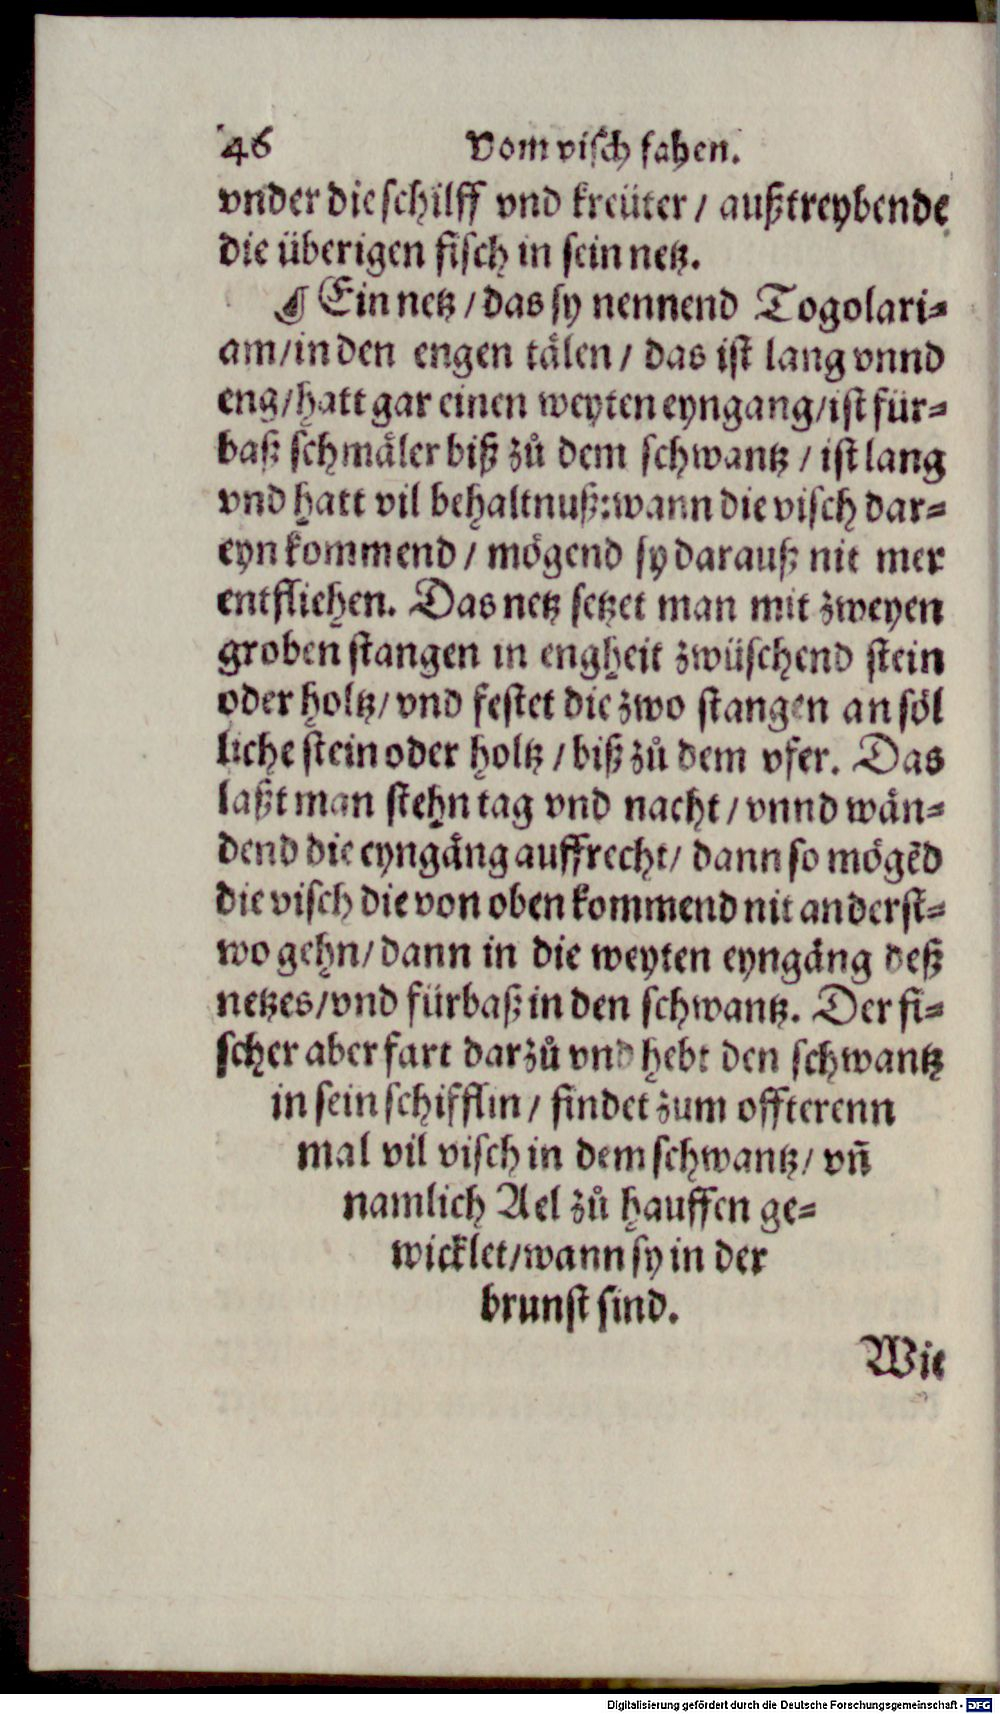 46 Vom visch fahen.
vnder die schilff vnd kreüter / außtreybende
die überigen fisch in sein netz.
¶ Ein netz / das sy nennend Togolari=
am/in den engen tälen / das ist lang vnnd
eng/hatt gar einen weyten eyngang/ist für=
baß schmäler biß zů dem schwantz / ist lang
vnd hatt vil behaltnuß: wann die visch dar=
eyn kommend / mögend sy darauß nit mer
entfliehen. Das netz setzet man mit zweyen
groben stangen in engheit zwüschend stein
oder holtz/ vnd festet die zwo stangen an söl
liche stein oder holtz / biß zů dem vfer. Das
laßt man stehn tag vnd nacht / vnnd wän=
dend die eyngäng auffrecht/ dann so mögẽd
die visch die von oben kommend nit anderst=
wo gehn/ dann in die weyten eyngäng deß
netzes/vnd fürbaß in den schwantz. Der fi=
scher aber fart darzů vnd hebt den schwantz
in sein schifflin / findet zum offterenn
mal vil visch in dem schwantz/ vñ
namlich Ael zů hauffen ge=
wicklet/wann sy in der
brunst sind.
Wie
Digitalisierung gefördert durch die Deutsche Forschungsgemeinschaft - DFG